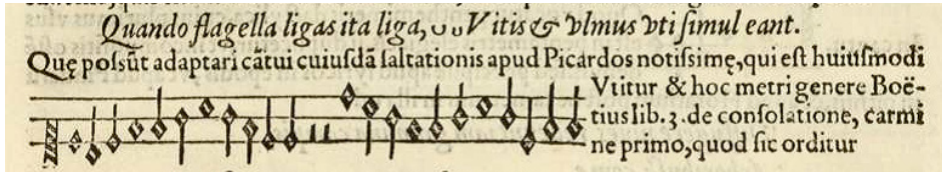 Quando flagella ligas ita liga, ᴗ ᴗ Vitis & vlmus vti ſimul eant.
Quę poſsūt adaptari cātui cuiuſdā ſaltationis apud Picardos notiſsimę, qui eſt huiuſmodi
Vtitur & hoc metri genere Boë-
tius lib. 3. de conſolatione, carmi
ne primo, quod ſic orditur